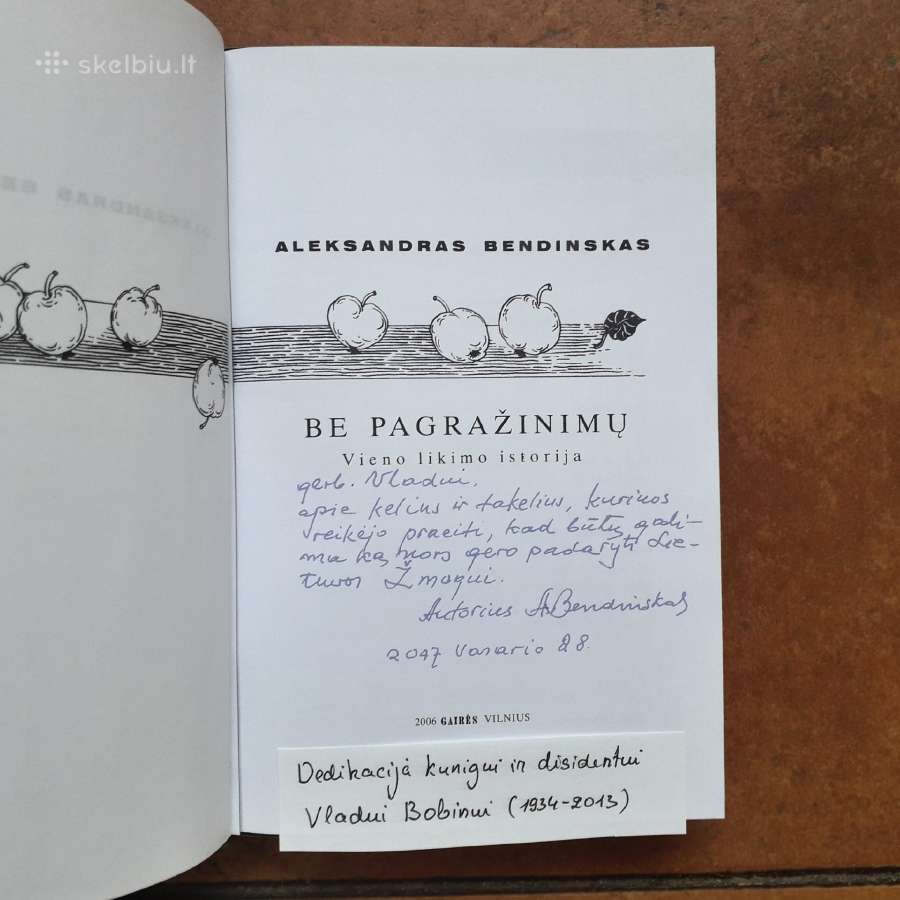 skelbiu.lt
ALEKSANDRAS BENDINSKAS
BE PAGRAŽINIMŲ
Vieno likimo istorija
gerb. Vladui,
apie kelius ir takelius, kuriuos
reikėjo praeiti, kad būtų gali-
ma ką nors gero padaryti Lie-
tuvos Žmogui.
Autorius A. Bendinskas
Vasario 28.
2006 GAIRĖS VILNIUS
Dedikacija kunigui ir disidentui
Vladui Bobinui (1934-2013)